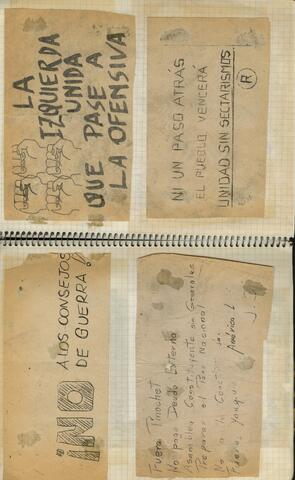 LA
IZQUIERDA
UNIDA
QUE PASE A
LA OFENSIVA
NI UN PASO ATRÁS
EL PUEBLO VENCERÁ
UNIDAD SIN SECTARISMOS
R
¡NO A LOS CONSEJOS
DE GUERRA!
Fuera Pinochet
No pago Deuda Externa
Asamblea Constituyente sin Generales
Preparar el Paro Nacional
No a la
Fuera yanquis América L